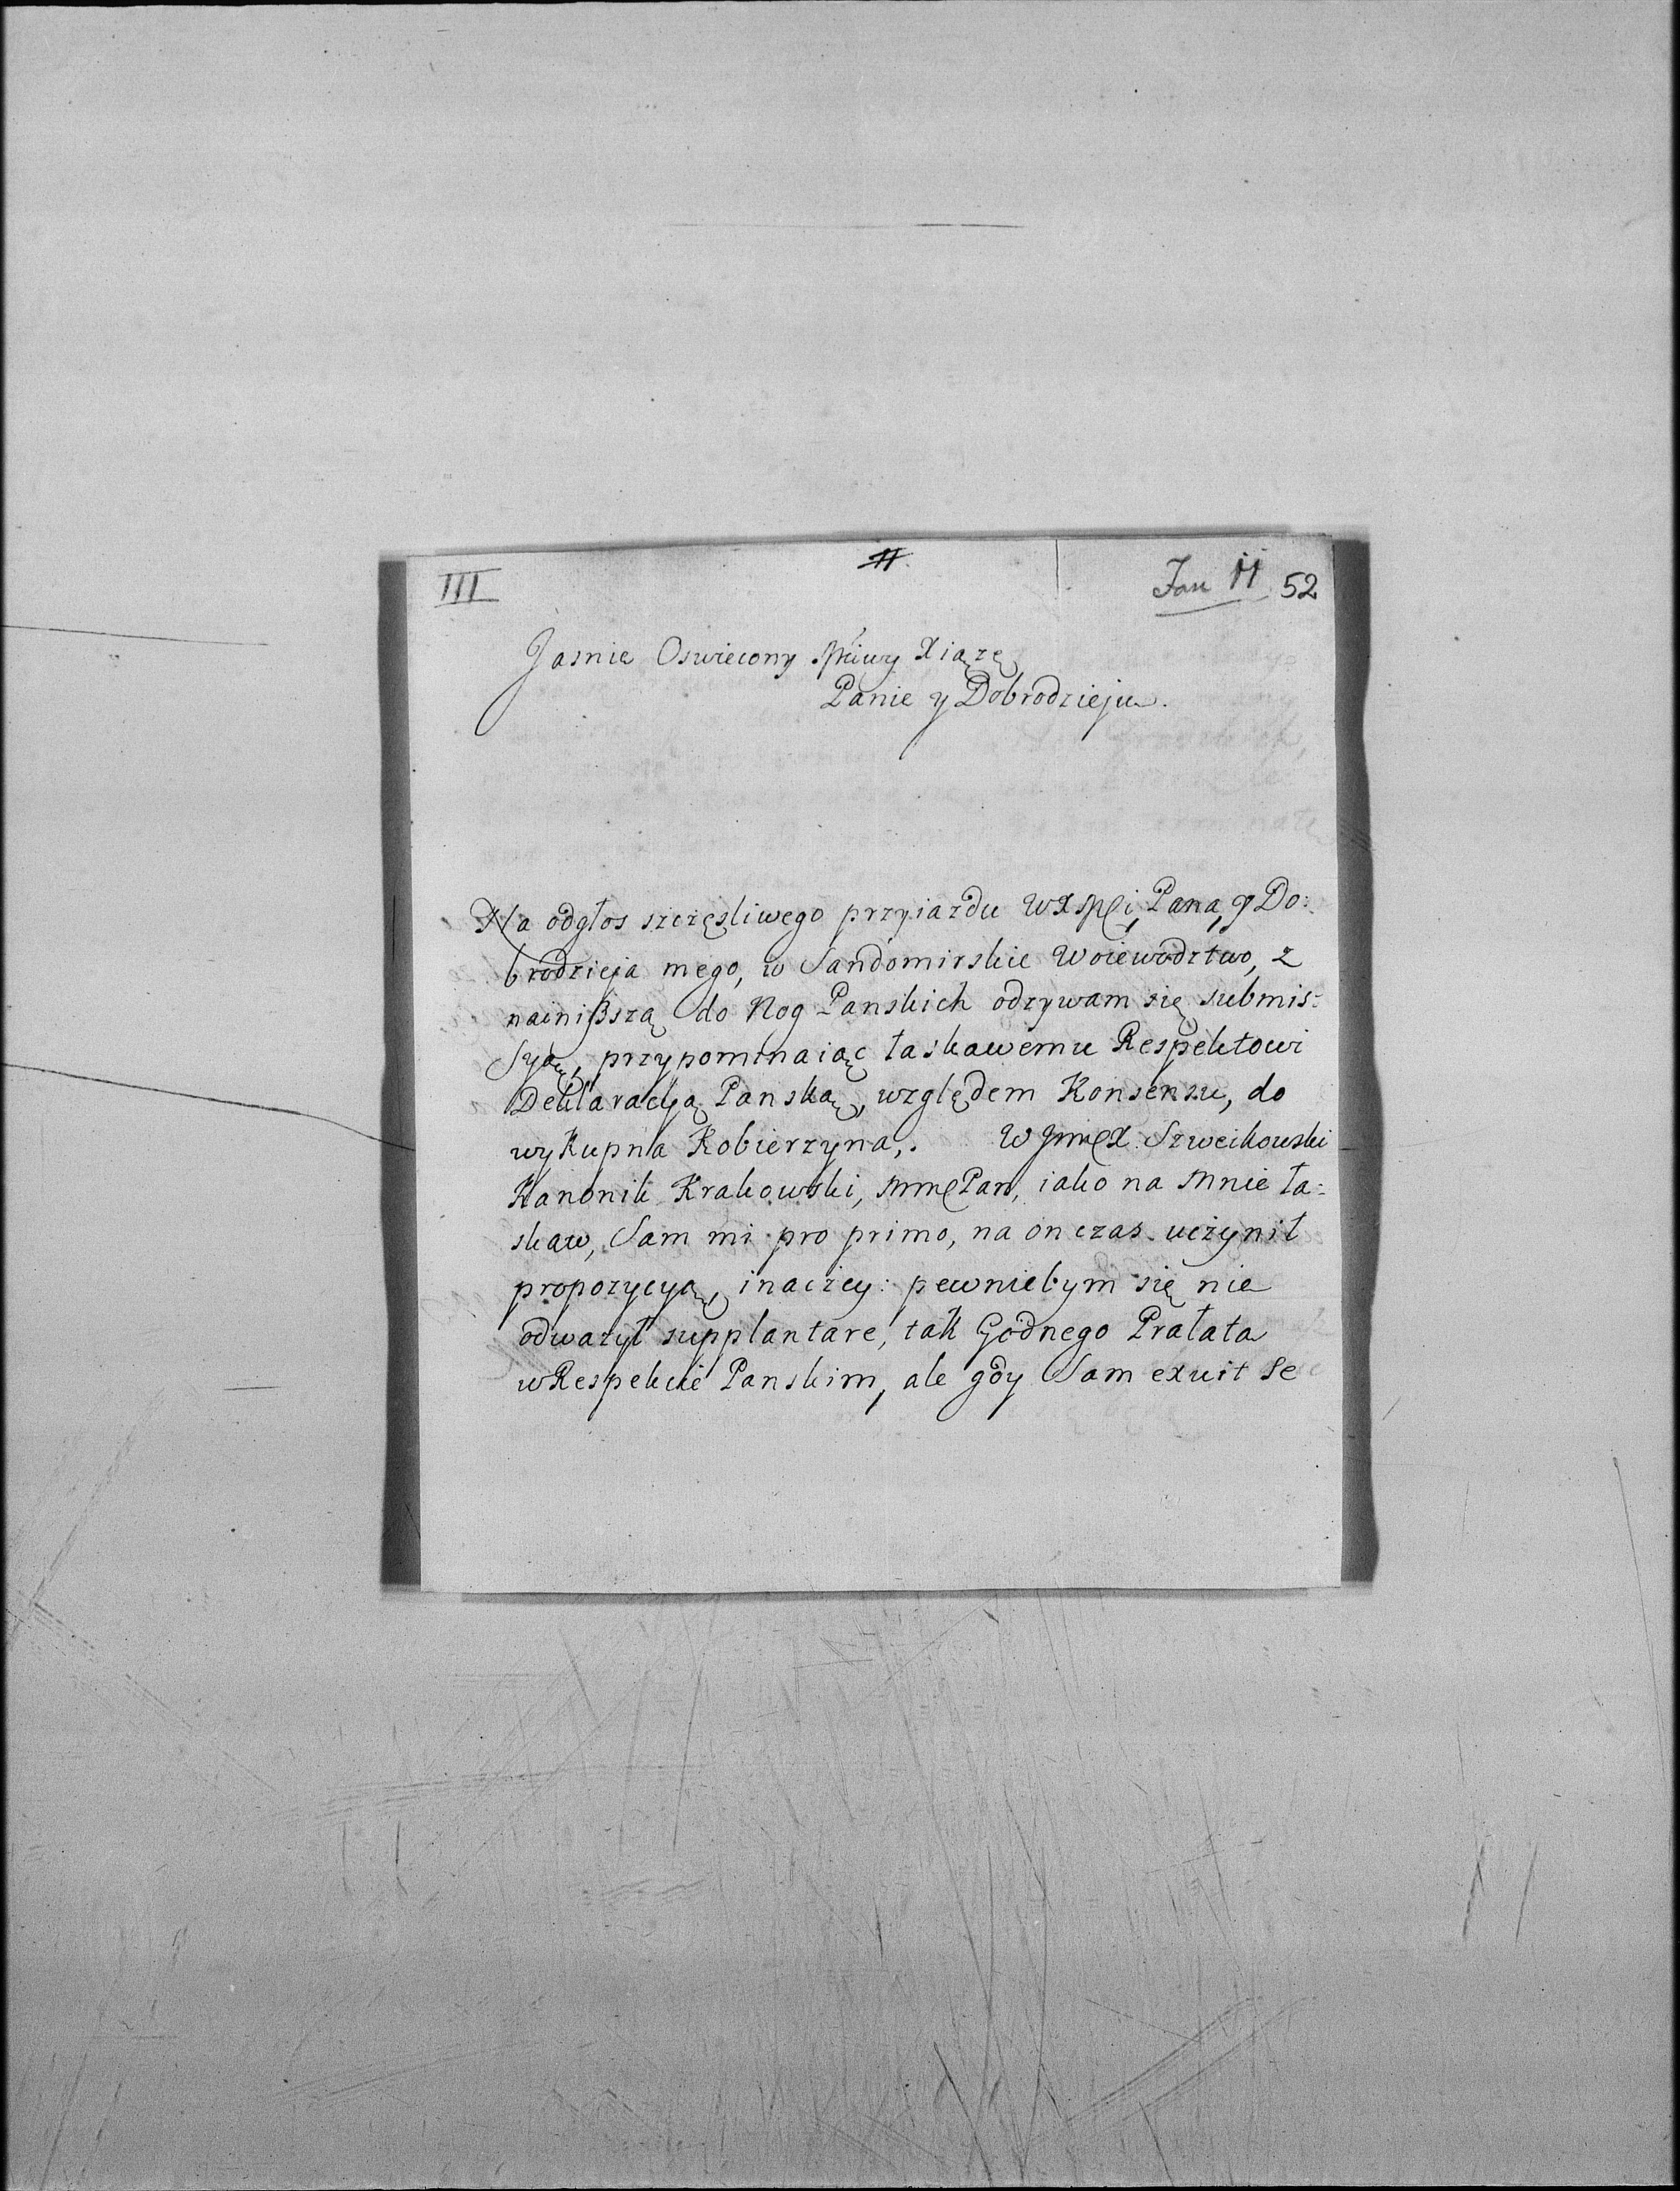 III
11
Jan 11 52
Jasnie Oswiecony Mćiwy Xiąże
Panie y Dobrodzieju.
Na odgłos szczęsliwego przyiazdu WXMci, Pana, y Do:
brodzieja mego, w Sandomirskie Woiewodztwo, z
nainiższą do Nog Panskich odzywam się submis:
syą, przypominaiąc łaskawemu Respektowi
Deklaracyą Panską, względem Konsensu, do
wykupna Kobierzyna,. W JmcX Szweikowski
Kanonik Krakowski, Mmc Pan, iako na Mnie ła:
skaw, Sam mi pro primo, na on czas uczynił
propozycyą, inaczey: pewniebym się nie
odwazył supplantare, tak Godnego Prałata
w Respekcie Panskim, ale gdy Sam exuit se